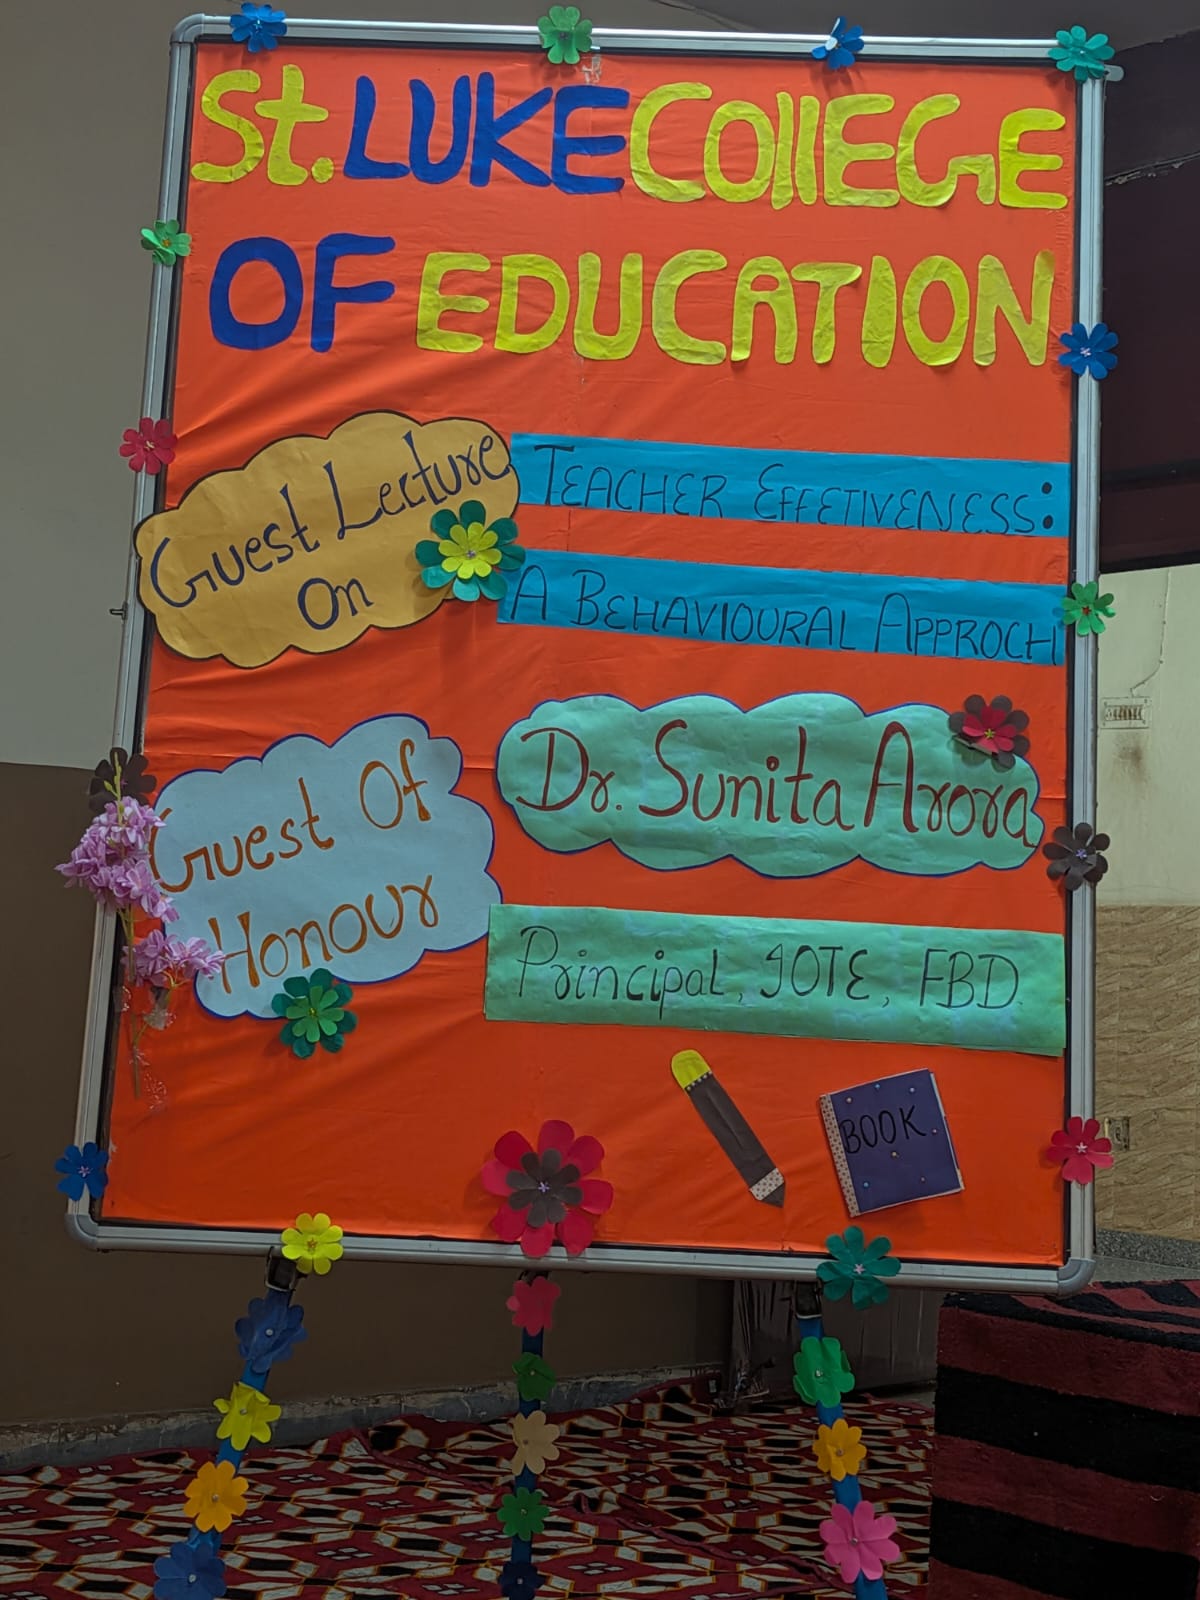 St. LUKE COllEGE
OF EDUCATION
Guest Lecture
On
TEACHER EFFETIVENESS:
A BEHAVIOURAL APPROCH
Guest Of
Honour
Dr. Sunita Arora
Principal, IOTE, FBD
BOOK